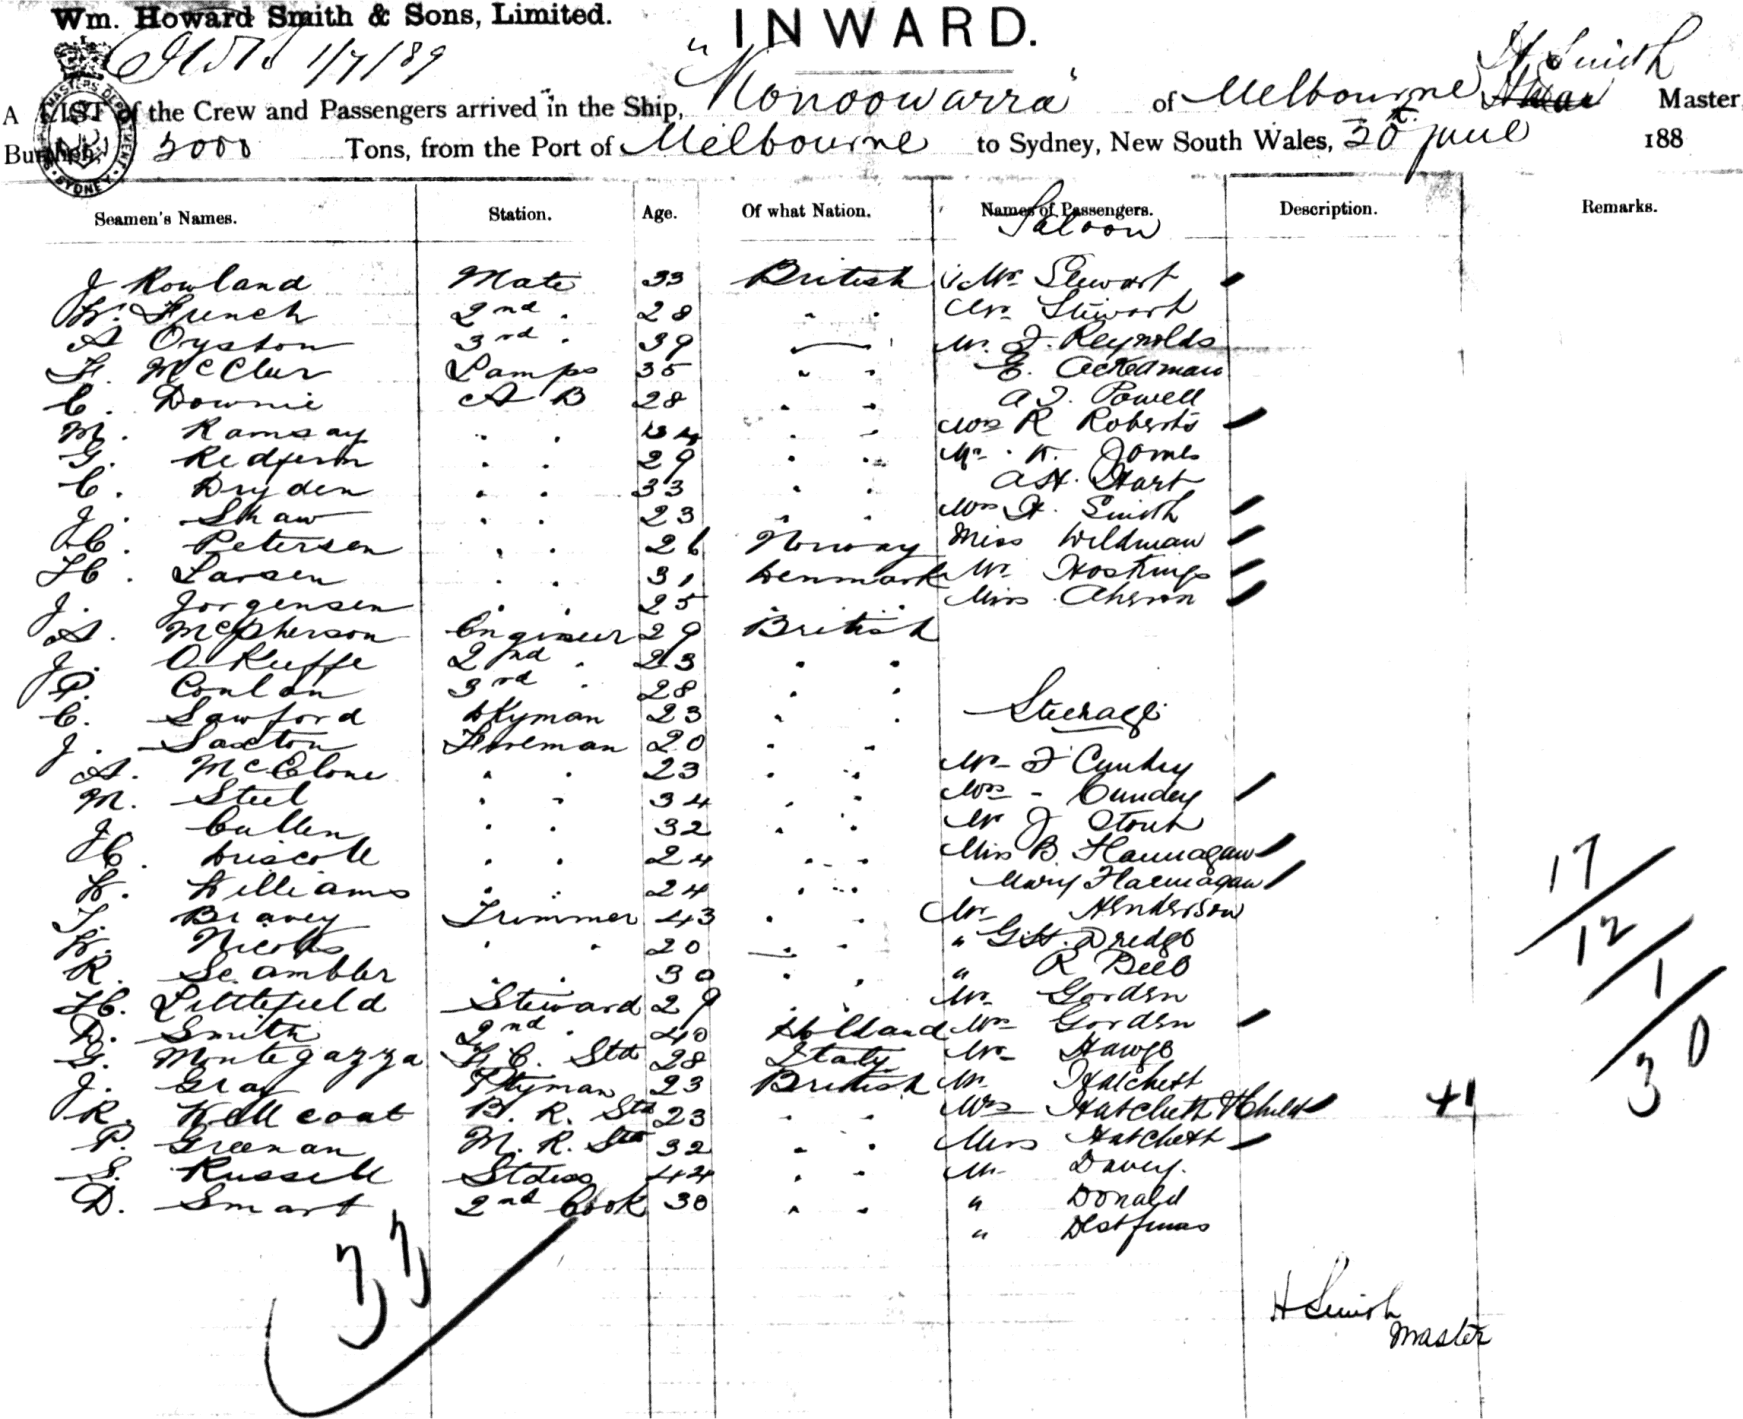 Wm. Howard Smith & Sons, Limited.
INWARD.
1/7/89
H Smith
A LIST of the Crew and Passengers arrived in the Ship, "Konoowarra" of Melbourne Master,
Burthen, 3000 Tons, from the Port of Melbourne to Sydney, New South Wales, 30th June 188
MASTERS DEPARTMENT SYDNEY
Seamen's Names. Station. Age. Of what Nation. Names of Passengers. Description. Remarks.
Saloon
J Rowland Mate 33 British Mr Stewart
W. French 2nd " 28 " " Mrs Stewart
A Oryston 3rd " 39 " Mr. J. Reynolds
F. McClur Lamps 35 " " E. Ackerman
C. Downie A B 28 " " A J. Powell
M. Ramsay " " 34 " " Mrs R Roberts
G. Redfern " " 29 " " Mr. K. Jones
C. Dryden " " 33 " " A H. Hart
J. Shaw " " 23 " " Mrs H. Smith
C. Petersen " " 26 Norway Miss Wildman
H. Larsen " " 31 Denmark Mr. Hoskings
J. Jorgensen " " 25 " " Miss Ahern
A. McPherson Engineer 29 British
J. O Keeffe 2nd " 23 " "
P. Conlan 3rd " 28 " "
C. Sawford Dkyman 23 " " Steerage
J. Saxton Fireman 20 " "
A. McClone " " 23 " " Mr J Cundey
M. Steel " " 34 " " Mrs - Cundey
J. Cullen " " 32 " " Mr J Stout
C. Driscoll " " 24 " " Miss B. Flannagan
W. Williams " " 24 " " Mary Flannagan
T. Bravey Trimmer 43 " " Mr Henderson
W. Nicolls " " 20 " " " G.H. Dredge
R. Scambler " " 30 " " " R Beeb
H. Littlefield Steward 29 " " Mr Gordon
D. Smith 2nd " 40 Holland Mrs Gordon
G. Montegazza F. C. Std 28 Italy Mr Hawge
J. Gray Ptyman 23 British Mr Hatchett
R. Wellcoat B. R. Std 23 " " Mrs Hatchett & Child +1
P. Greenan M. R. Std 32 " " Miss Hatchett
S. Russell Stdess 44 " " Mr Davey.
D. Smart 2nd Cook 30 " " " Donald
"
17/
12/
1/
30
33
H Smith
Master